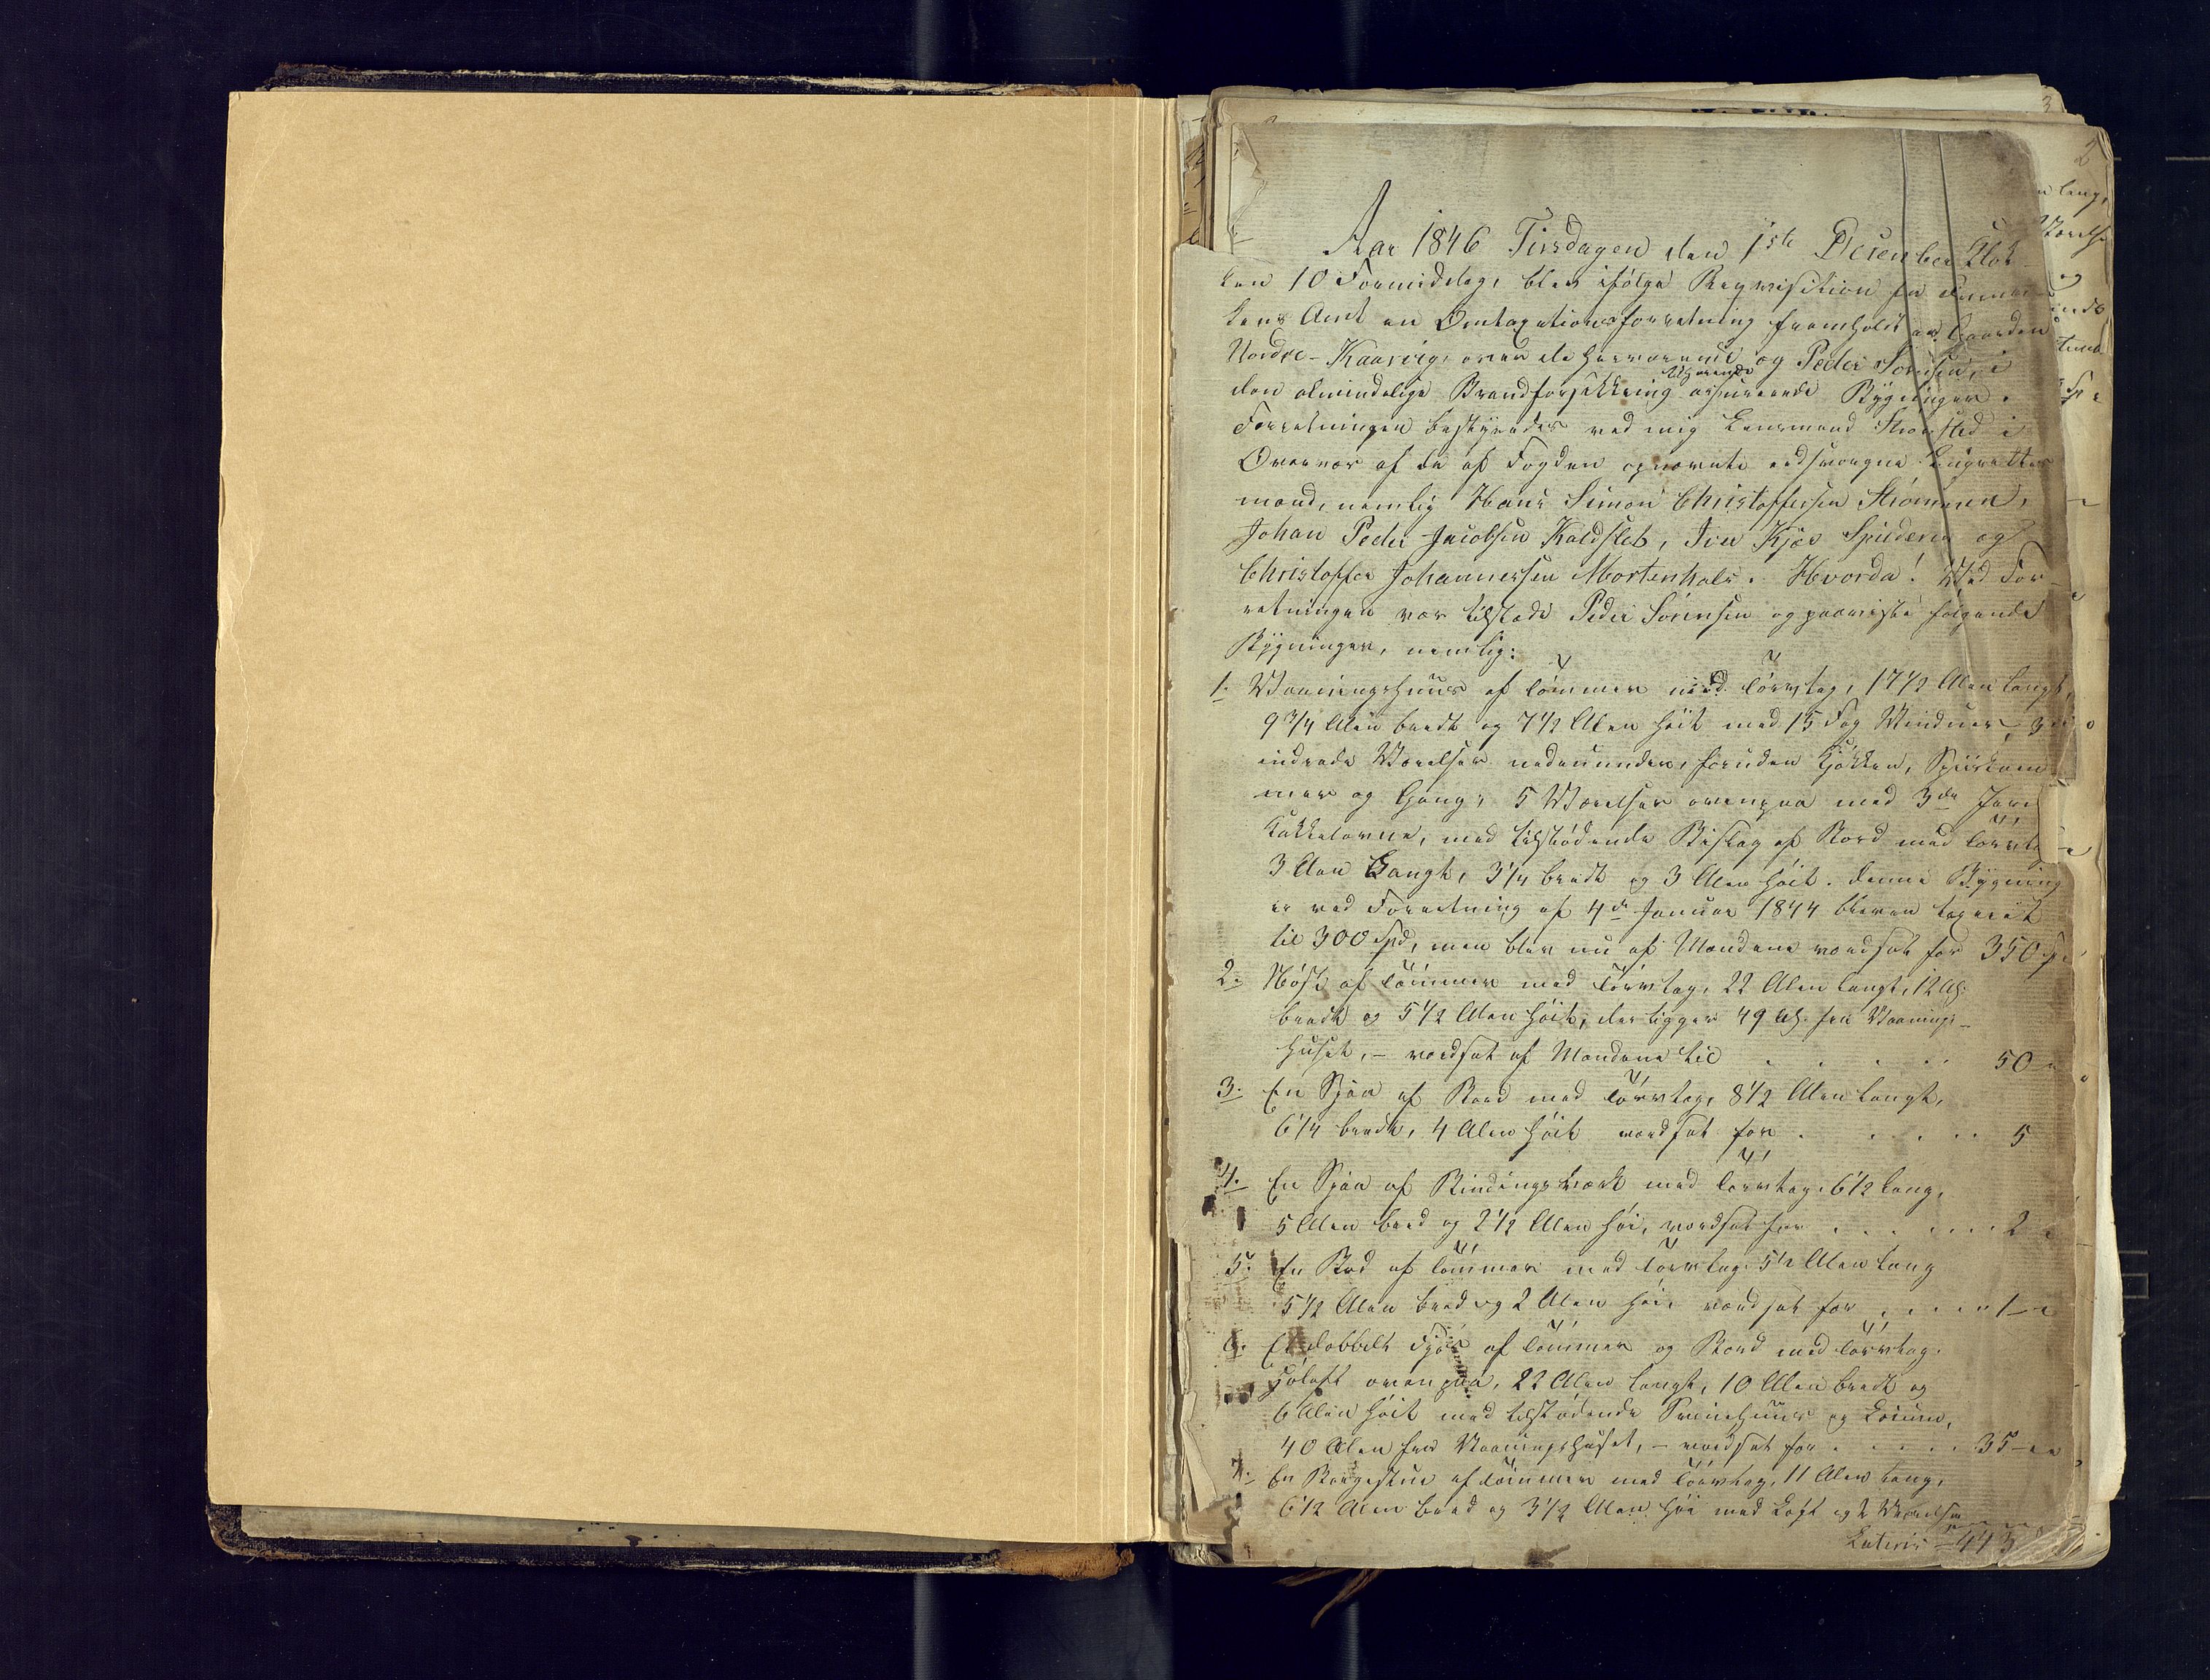 Aar 1846 Tirsdagen den 1ste Desember Klok-
ken 10 Formiddag, blev ifølge Reqvisition fra Finmar-
kens Amt en Omtaxationsforretning fremholdt paa Gaarden
Nordre-Kaarvig, over de herværende og Peder Sørensen, i
den almindelige Brandforsikkring tilhørende assureerede Bygninger.
Forretningen bestyredes ved mig Lensmand Strømsted i
Overvær af de af Fogden opnævnte edsvorgne Laugrettes
mænd, nemlig Hans Simon Christoffersen Strømmen,
Johan Peder Jacobsen Kaldslet, Iver Kjær Spilderen og
Christoffer Johannessen Mortenhals. Hvorda! Ved For-
retningen var tilstæde Peder Sørensen og paaviste følgende
Bygninger, nemlig:
1. Vaaningshuus af Tømmer med Tørvtag, 17 1/2 Alen langt,
9 3/4 Alen bredt og 7 1/2 Alen høit med 15 Fag Vinduer, 3de
indrede Værelser nedenunder, foruden Kjøkken, Spiiskam
mer og Gang, 5 Værelser ovenpaa med 3de Jern
Kakkelovne, med tilstødende Bislag af Bord med Tørvta
3 Alen Langt, 3 1/4 bredt og 3 Alen høit. Denne Bygning
er ved Forretning af 4de Januar 1844 bleven taxeret
til 300 Spd, men blev nu af Mændene værdsat for 350 Sp
2. Nøst af Tømmer med Tørvtag, 22 Alen langt, 12 Al:
bredt og 5 1/2 Alen høit, der ligger 49 Al: fra Vaanings-
huset, - værdsat af Mændene til . . . . 50 -
3. En Sjaa af Bord med Tørvtag, 8 1/2 Alen langt,
6 1/4 bredt, 4 Alen høit værdsat for . . . . . 5
4. En Sjaa af Bindingsværk med Tørvtag, 6 1/2 lang,
5 Alen bred og 2 1/2 Alen høi, værdsat for . . . . . . 2
5. En Bod af Tømmer med Tørvtag 5 1/2 Alen lang
5 1/2 Alen bred og 2 Alen høi, værdsat for . . . . 1 -
6. Et dobbelt Fjøs af Tømmer og Bord med Tørvtag.
Høloft ovenpaa, 22 Alen langt, 10 Alen bredt og
6 Alen høit med tilstødende Sviinehuus og
40 Alen fra Vaaningshuset, - værdsat for . . . . . 35 -
7. En Borgestue af Tømmer med Tørvtag, 11 Alen lang,
6 1/2 Alen bred og 3 1/2 Alen høi med Loft og 2 Værelser
Lateris = 443